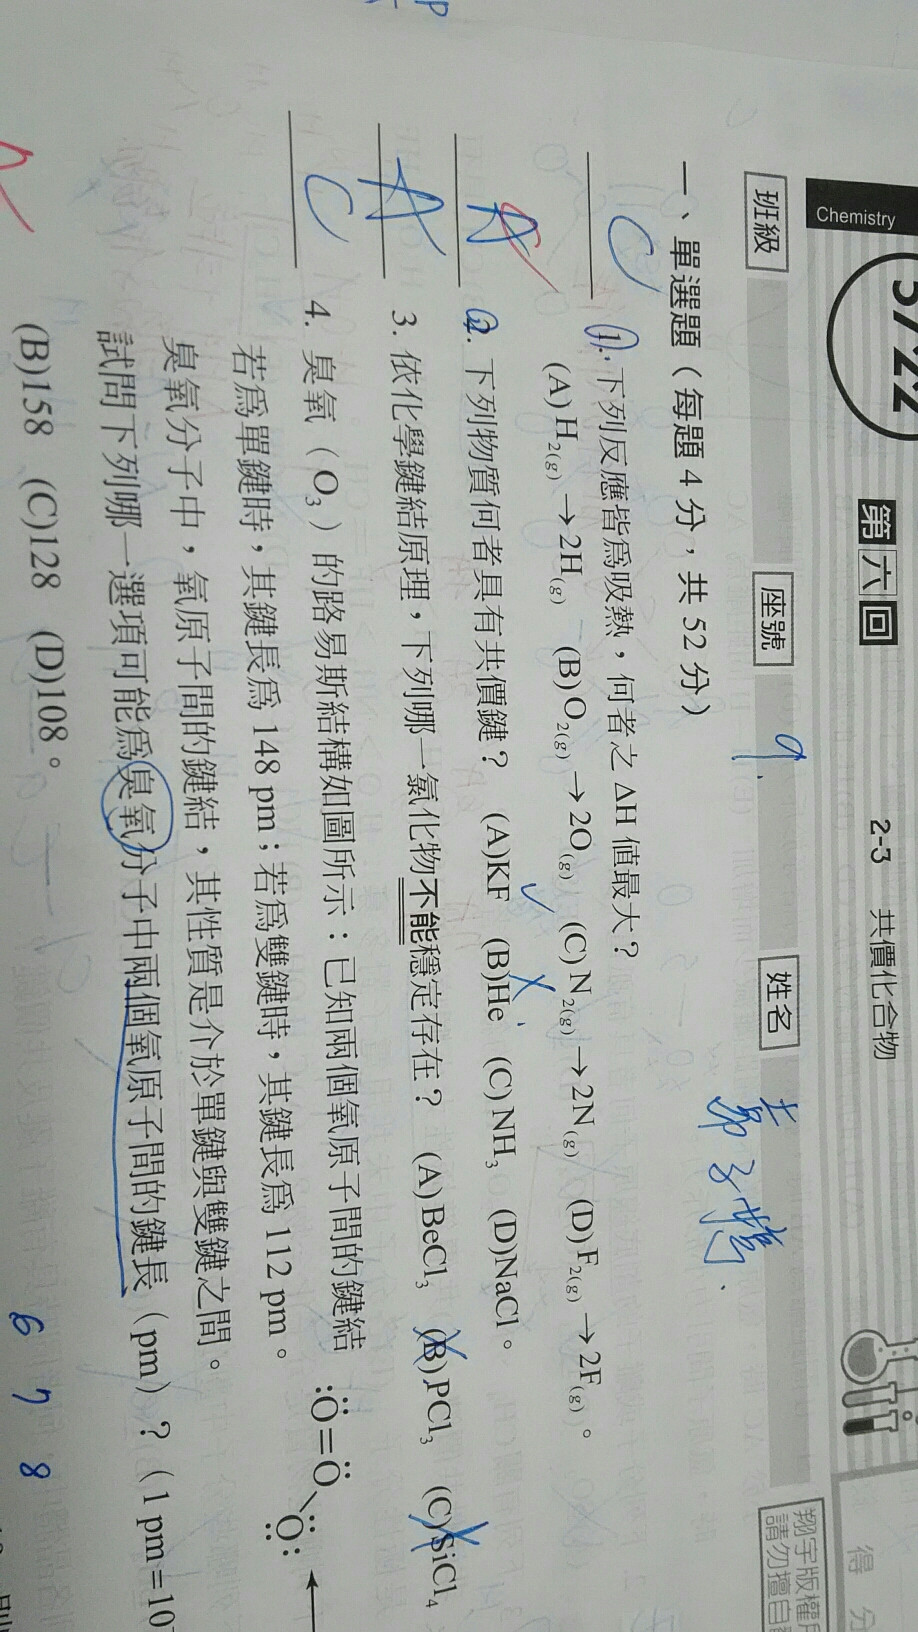 Chemistry
57-22
第六回
2-3 共價化合物
得 分
班級
座號 9.
姓名
翔宇版權所
請勿擅自翻
一、單選題（每題 4 分，共 52 分）
C 1. 下列反應皆為吸熱，何者之 ΔH 值最大？
(A) H2(g) →2H(g) (B) O2(g) → 2O(g) (C) N2(g) →2N(g) (D) F2(g) →2F(g)。
A C 2. 下列物質何者具有共價鍵？ (A)KF (B)He (C) NH3 (D)NaCl。
A 3. 依化學鍵結原理，下列哪一氯化物不能穩定存在？ (A) BeCl3 (B) PCl3 (C) SiCl4
C 4. 臭氧（O3）的路易斯結構如圖所示：已知兩個氧原子間的鍵結
若為單鍵時，其鍵長為 148 pm；若為雙鍵時，其鍵長為 112 pm。
臭氧分子中，氧原子間的鍵結，其性質是介於單鍵與雙鍵之間。
試問下列哪一選項可能為臭氧分子中兩個氧原子間的鍵長（pm）？（1 pm=10
(B)158 (C)128 (D)108。
O=O
O
6 7 8
P